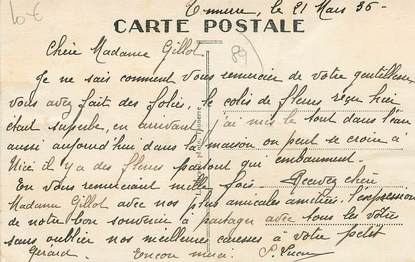 10 €
Tonnerre, le 21 Mars 36 -
CARTE POSTALE
89
Chère Madame Gillot
Je ne sais comment vous remercier de votre gentillesse
vous avez fait des folies, le colis de fleurs reçu hier
était superbe, en arrivant j'ai mis le tout dans l'eau
aussi aujourd'hui dans la maison on peut se croire à
Nice il y a des fleurs partout qui embaument.
En vous remerciant mille fois Recevez chère
Madame Gillot avec nos plus amicales amitiés l'expression
de notre bon souvenir à partager avec tous les vôtres
sans oublier nos meilleures caresses à votre petit
Gérard. Encore merci.